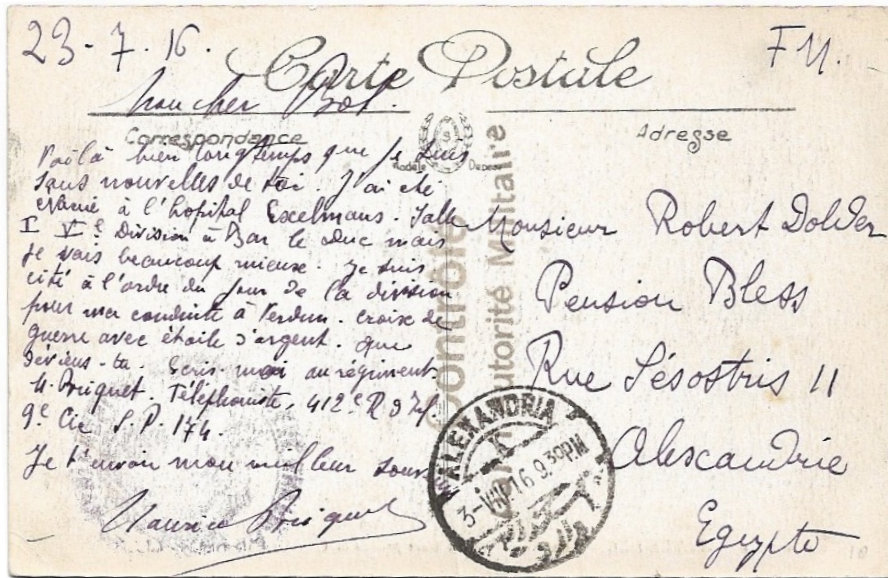 23-7.16.
F M.
Carte Postale
Mon cher Bob.
Correspondance
Adresse
Modèle Déposé
Voilà bien longtemps que je suis
sans nouvelles de toi. J'ai été
évacué à l'hopital Excelmans. Salle
I V Division à Bar le duc mais
je vais beaucoup mieux. Je suis
cité à l'ordre du jour de la division
pour ma conduite à Verdun. Croix de
guerre avec étoile d'argent. Que
deviens-tu. Ecris moi au régiment
Téléphoniste, 412e R d'Inf.
9e Cie S.P. 174.
Je t'envoie mon meilleur
Maurice
Monsieur Robert Dolder
Pension Bless
Rue Sésostris 11
Alexandrie
Egypte
Contrôle
Autorité Militaire
ALEXANDRIA
3-VIII 16 9 30 PM